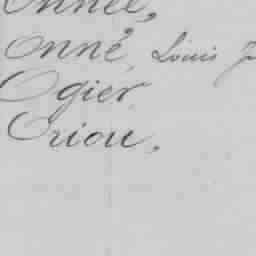 Onnée,
Onné, Louis J
Ogier
Oriou.